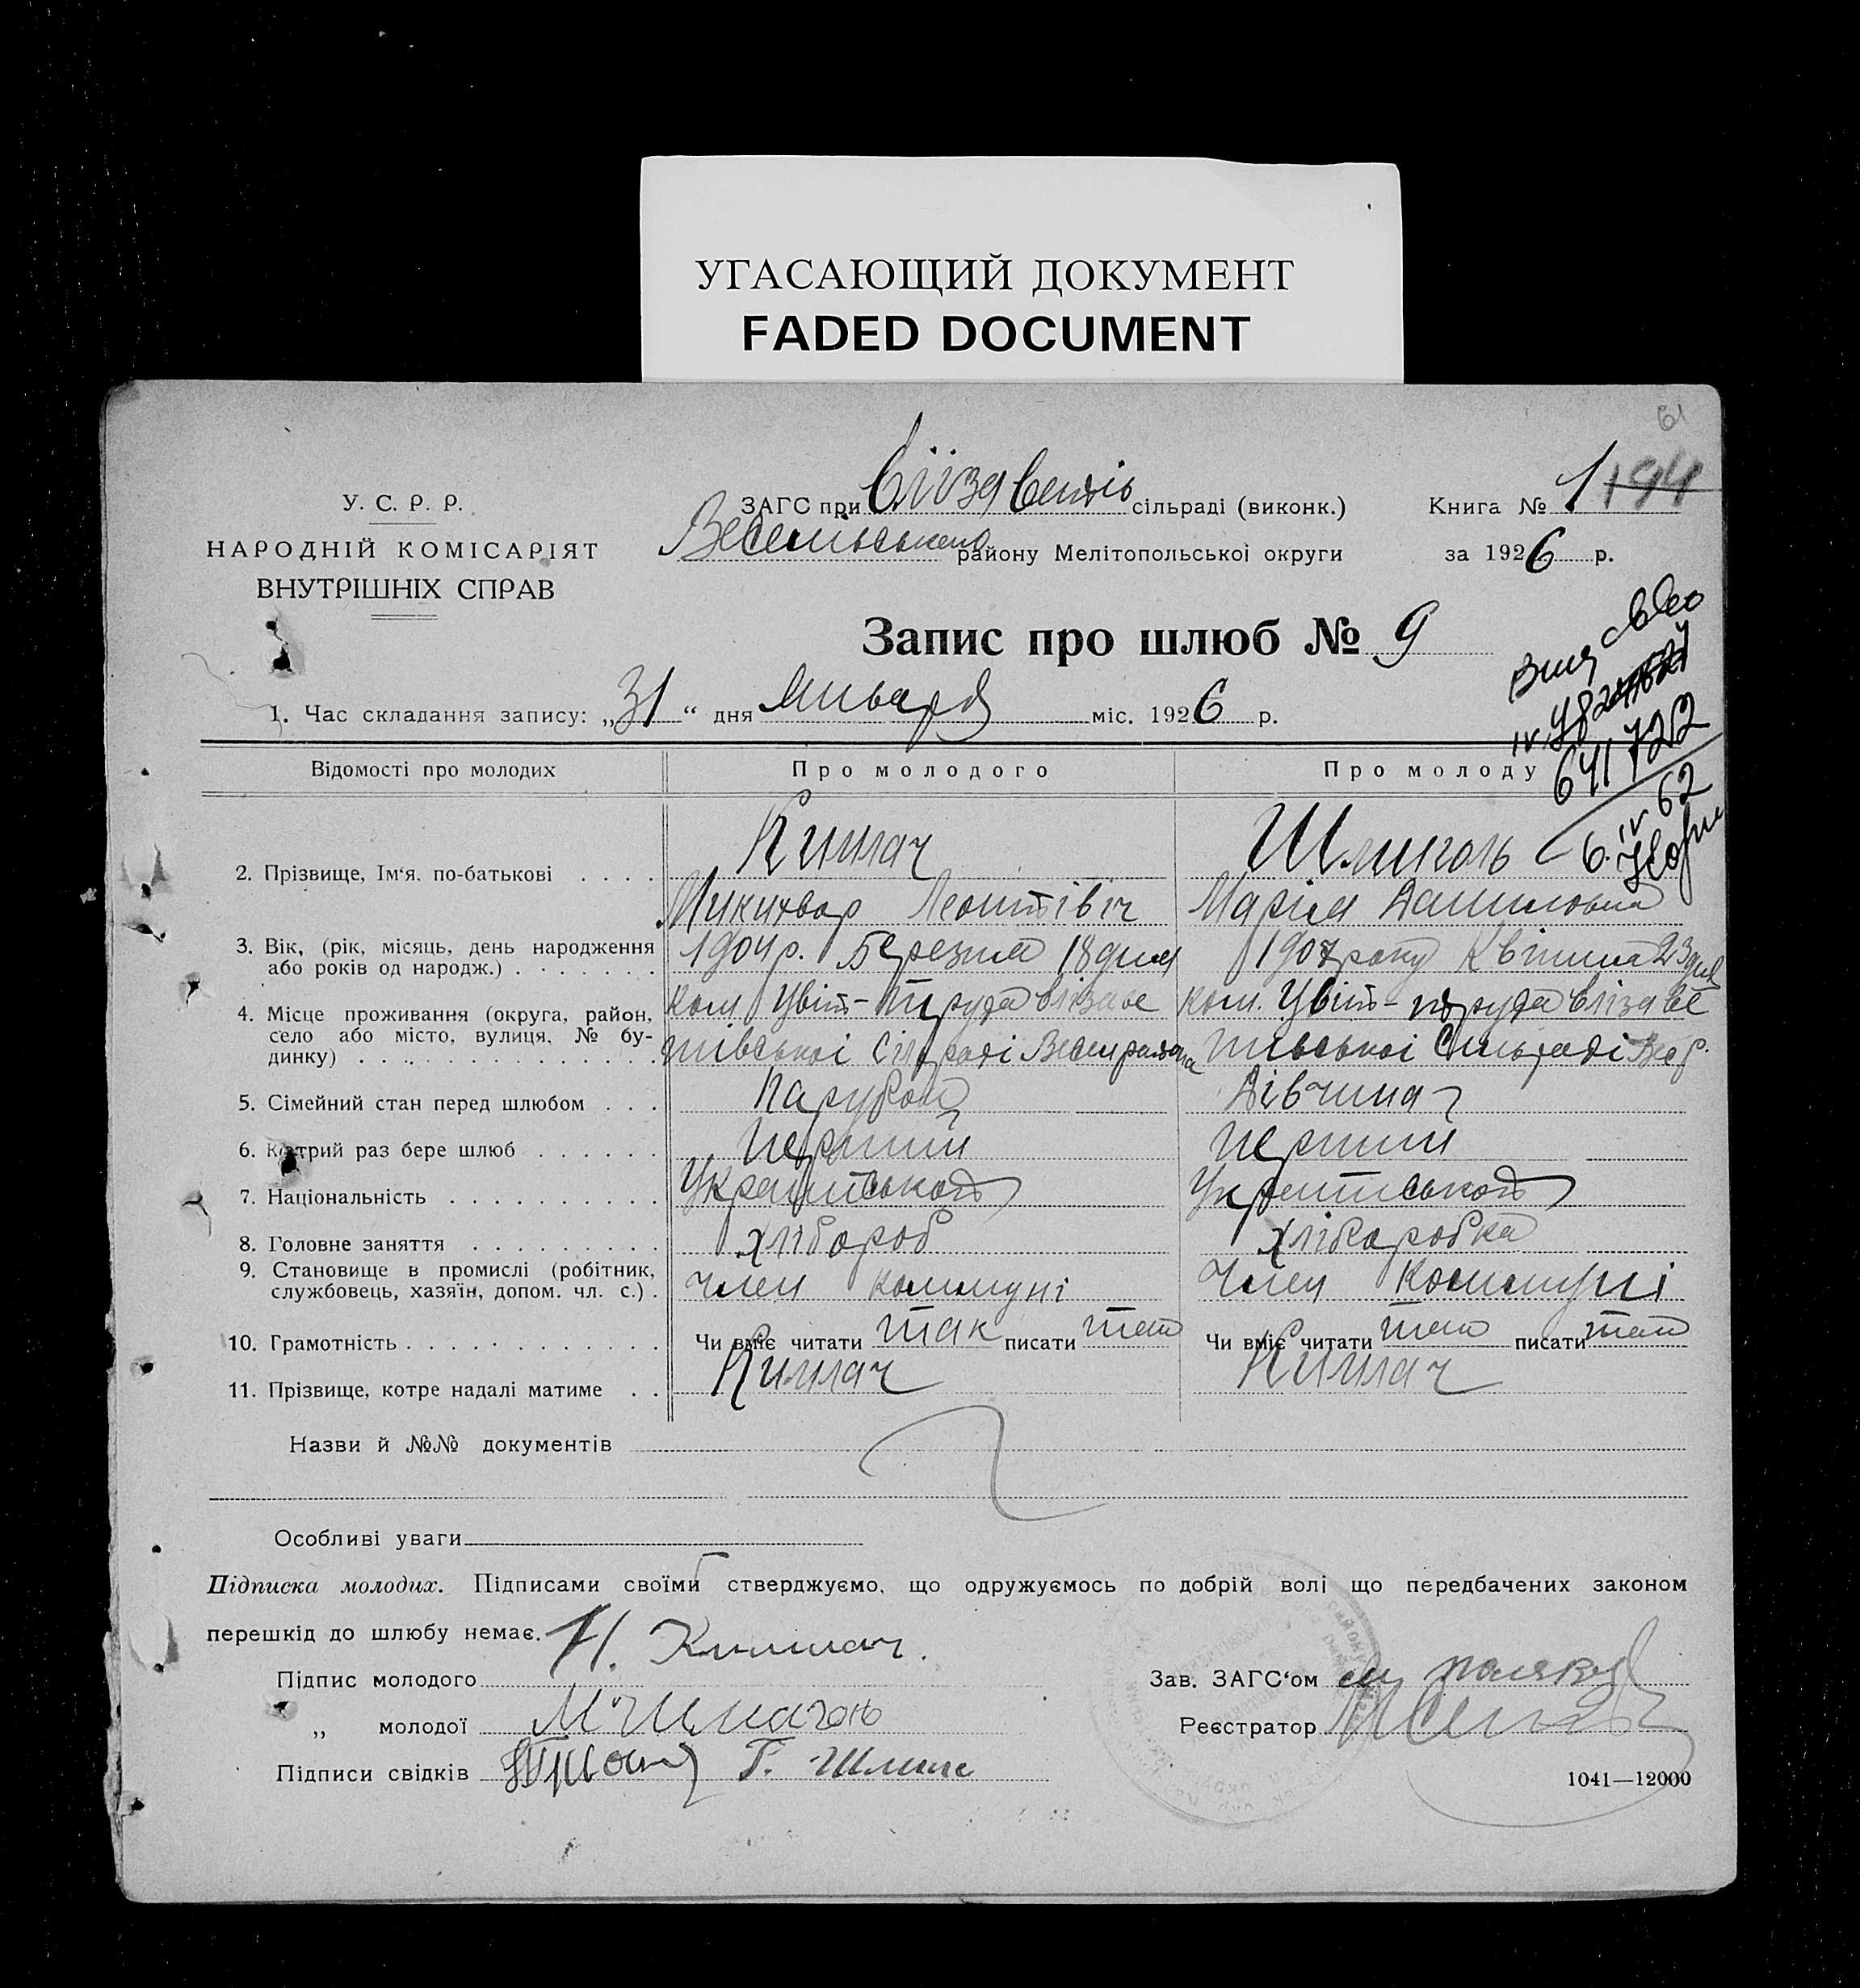 УГАСАЮЩИЙ ДОКУМЕНТ
FADED DOCUMENT
61
У. С. Р. Р.
НАРОДНІЙ КОМІСАРІЯТ
ВНУТРІШНІХ СПРАВ
ЗАГС при Єлізаветів сільраді (виконк.)
Весельського району Мелітопольської округи
Книга № 1 194
за 1926 р.
Запис про шлюб № 9
1. Час складання запису: „31“ дня Января міс. 1926 р.
641722
6. IV 62
Відомості про молодих
Про молодого
Про молоду
2. Прізвище, Ім‘я, по-батькові . . . .
Киплач
Шлиголь
Микихвор Леонтівіч
Марія Даниловна
3. Вік, (рік, місяць, день народження
або років од народж.) . . . . . . .
1904 р. Березня 18 дня
1907 року Квітня 23 дня
4. Місце проживання (округа, район,
село або місто, вулиця, № бу-
динку) . . . . . . . . . . . . . .
ком Цвіт-Труда Єлізаве
тівськоі Сілради Весел района
ком. Цвіт-труда Єлізаве
тівськоі Сильради Вес р.
5. Сімейний стан перед шлюбом . . .
Парубок
Дівчина
6. Котрий раз бере шлюб . . . . . .
перший
перший
7. Національність . . . . . . . . . .
Українськой
Українськой
8. Головне заняття . . . . . . . . .
хлібороб
хліборобка
9. Становище в промислі (робітник,
службовець, хазяїн, допом. чл. с.) .
член коммуні
Член Коммуні
10. Грамотність . . . . . . . . . . . .
Чи вміє читати так писати так
Чи вміє читати так писати так
11. Прізвище, котре надалі матиме . .
Киплач
Киплач
Назви й №№ документів
Особливі уваги
Підписка молодих. Підписами своїми стверджуємо, що одружуємось по добрій волі що передбачених законом
перешкід до шлюбу немає.
Підпис молодого Н. Киплач.
„ молодої
Підписи свідків
Зав. ЗАГС‘ом
Реєстратор
1041—12000